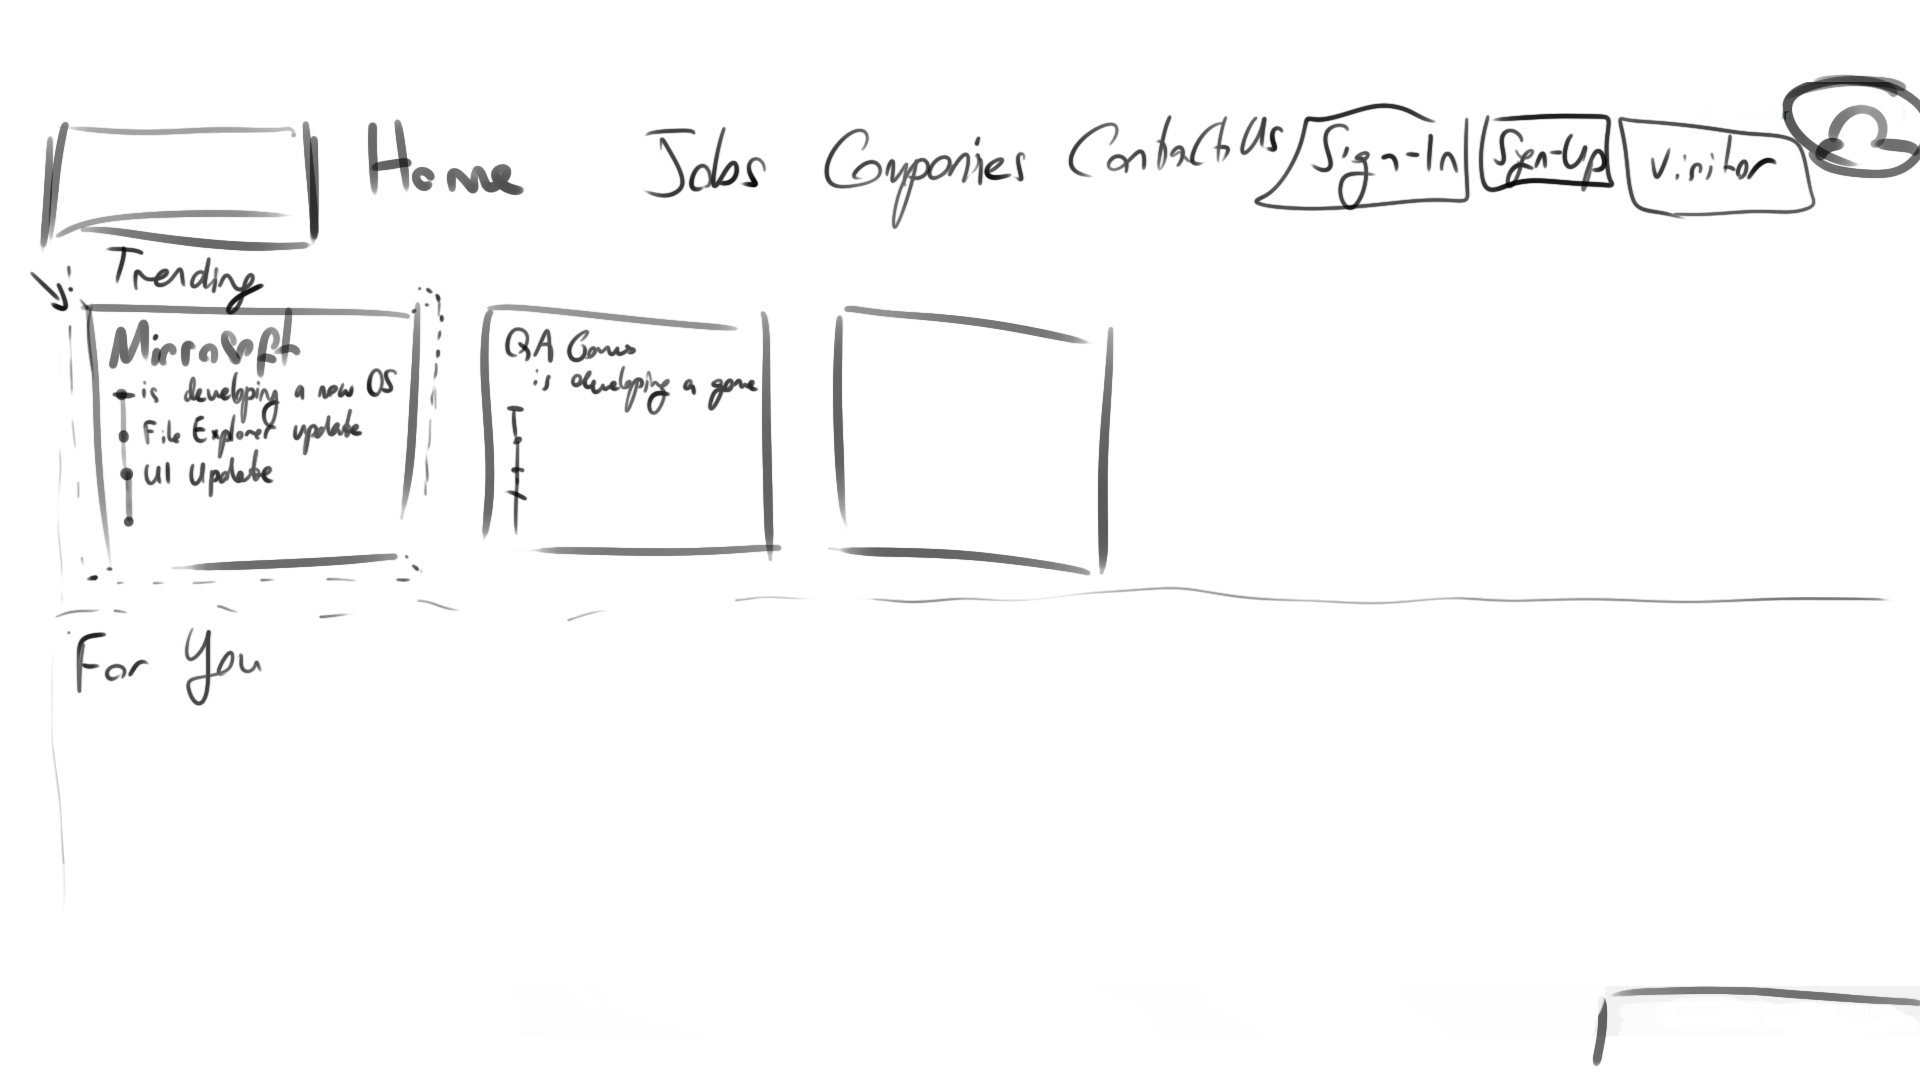 Home Jobs Companies Contact Us Sign-In Sign-Up Visitor
Trending
Microsoft
is developing a new OS
File Explorer update
UI Update
QA Games
is developing a game
For You